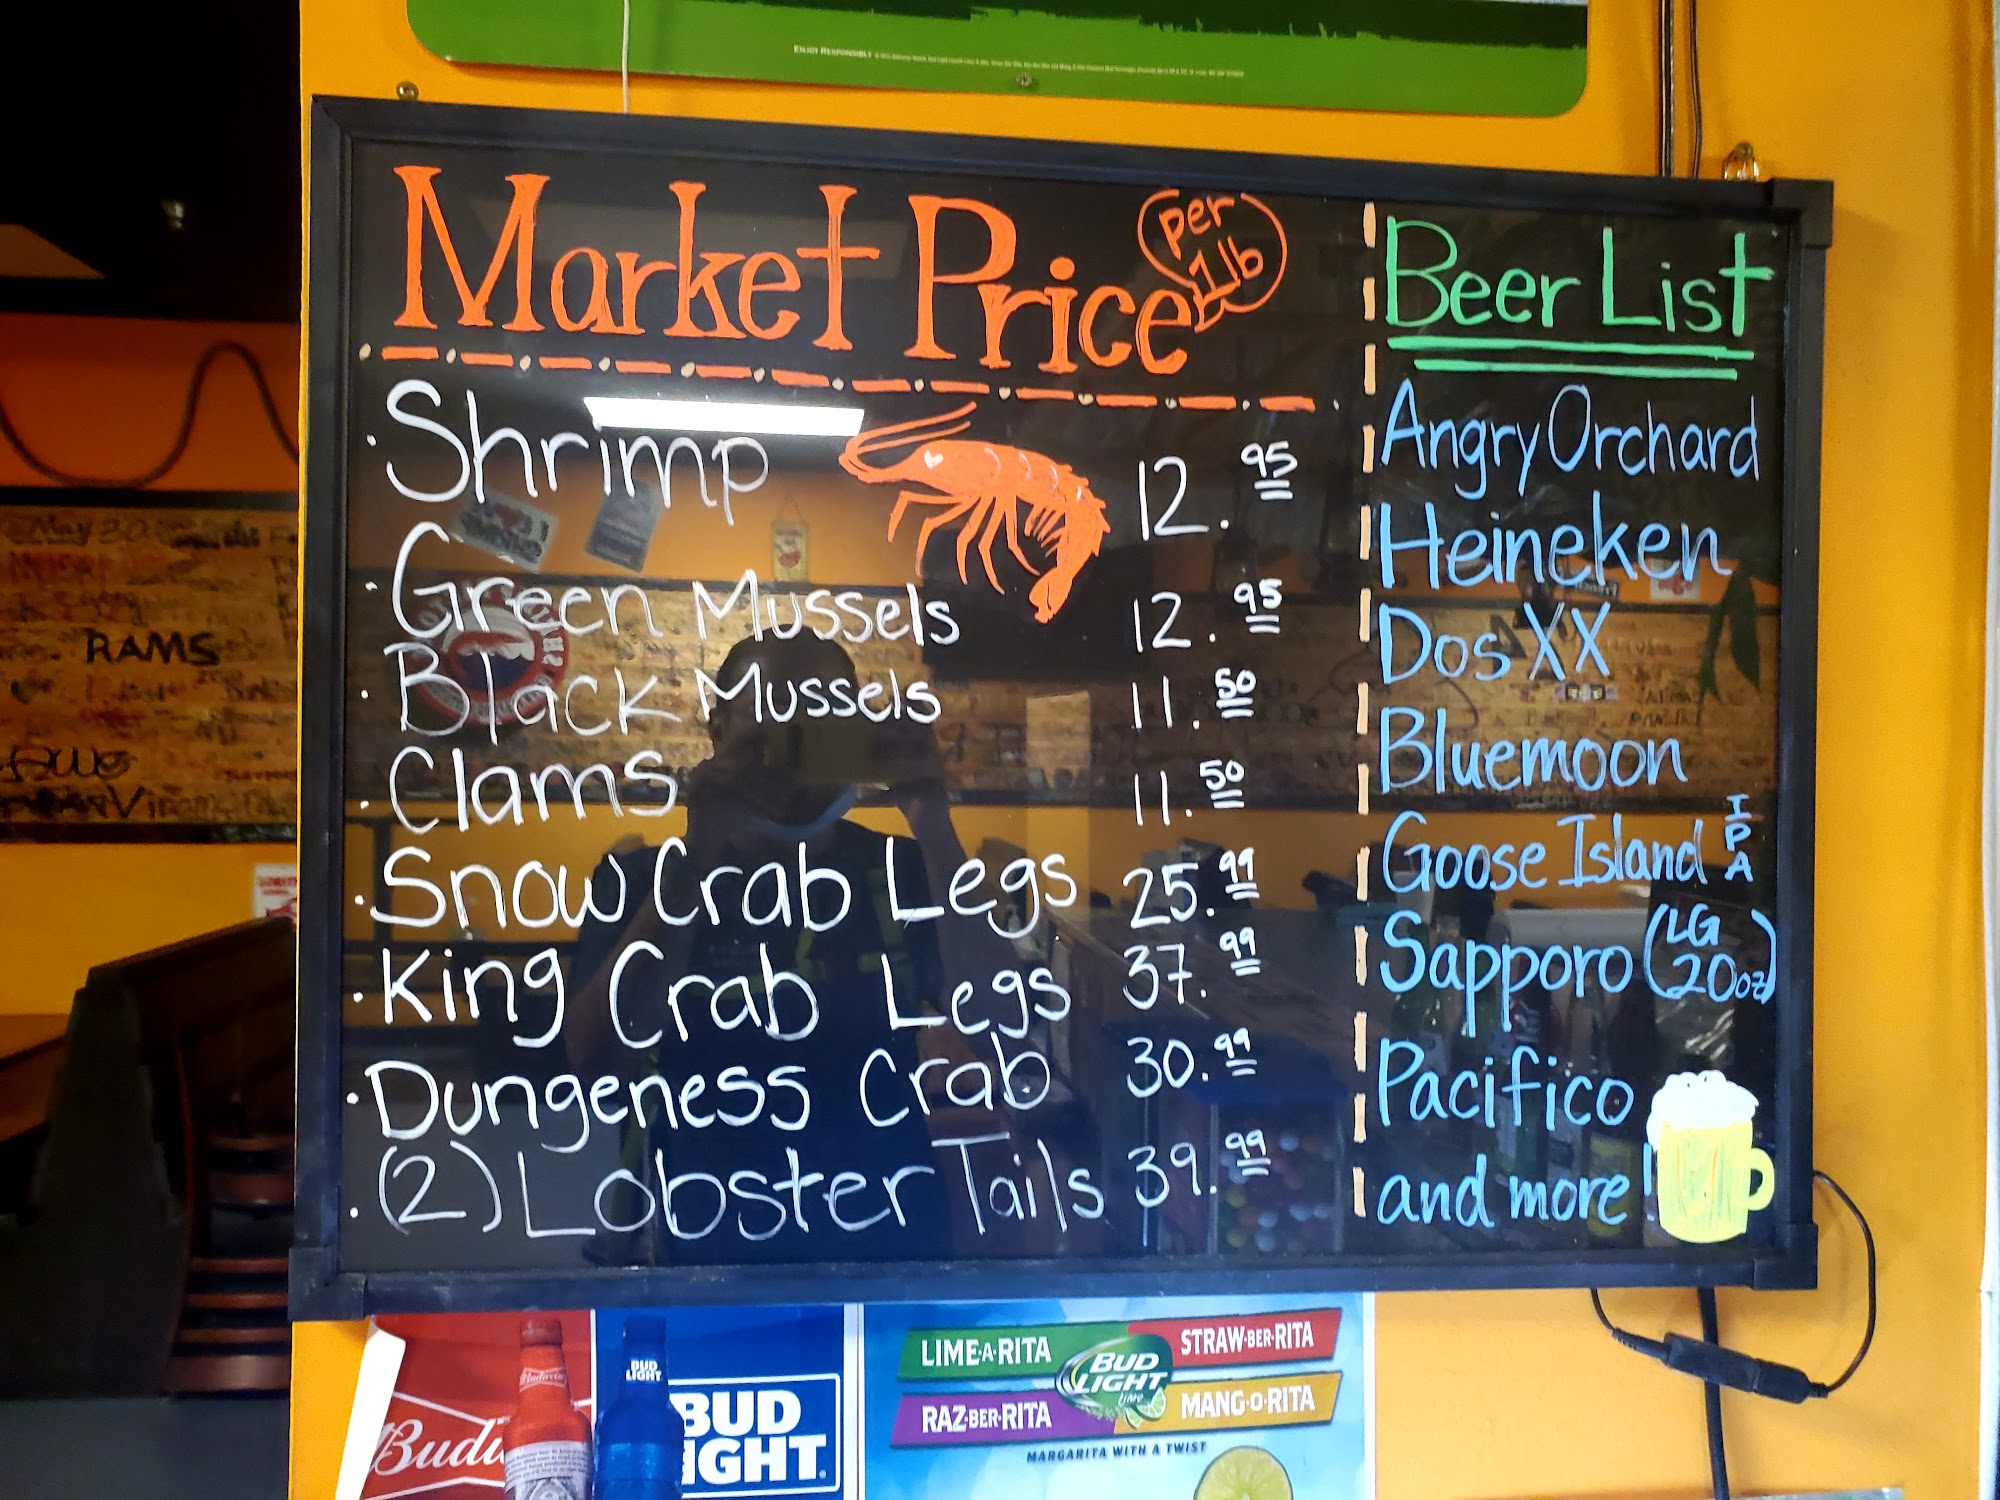 ENJOY RESPONSIBLY
Market Price
per
1lb
· Shrimp 12.95
· Green Mussels 12.95
· Black Mussels 11.50
· Clams 11.50
· Snow Crab Legs 25.99
· King Crab Legs 37.99
· Dungeness Crab 30.99
· (2) Lobster Tails 39.99
Beer List
Angry Orchard
Heineken
Dos XX
Bluemoon
Goose Island IPA
Sapporo (LG 20oz)
Pacifico
and more!
RAMS
Budweiser
BUD
LIGHT
BUD
LIGHT
LIME-A-RITA
STRAW-BER-RITA
BUD
LIGHT
Lime
RAZ-BER-RITA
MANG-O-RITA
MARGARITA WITH A TWIST